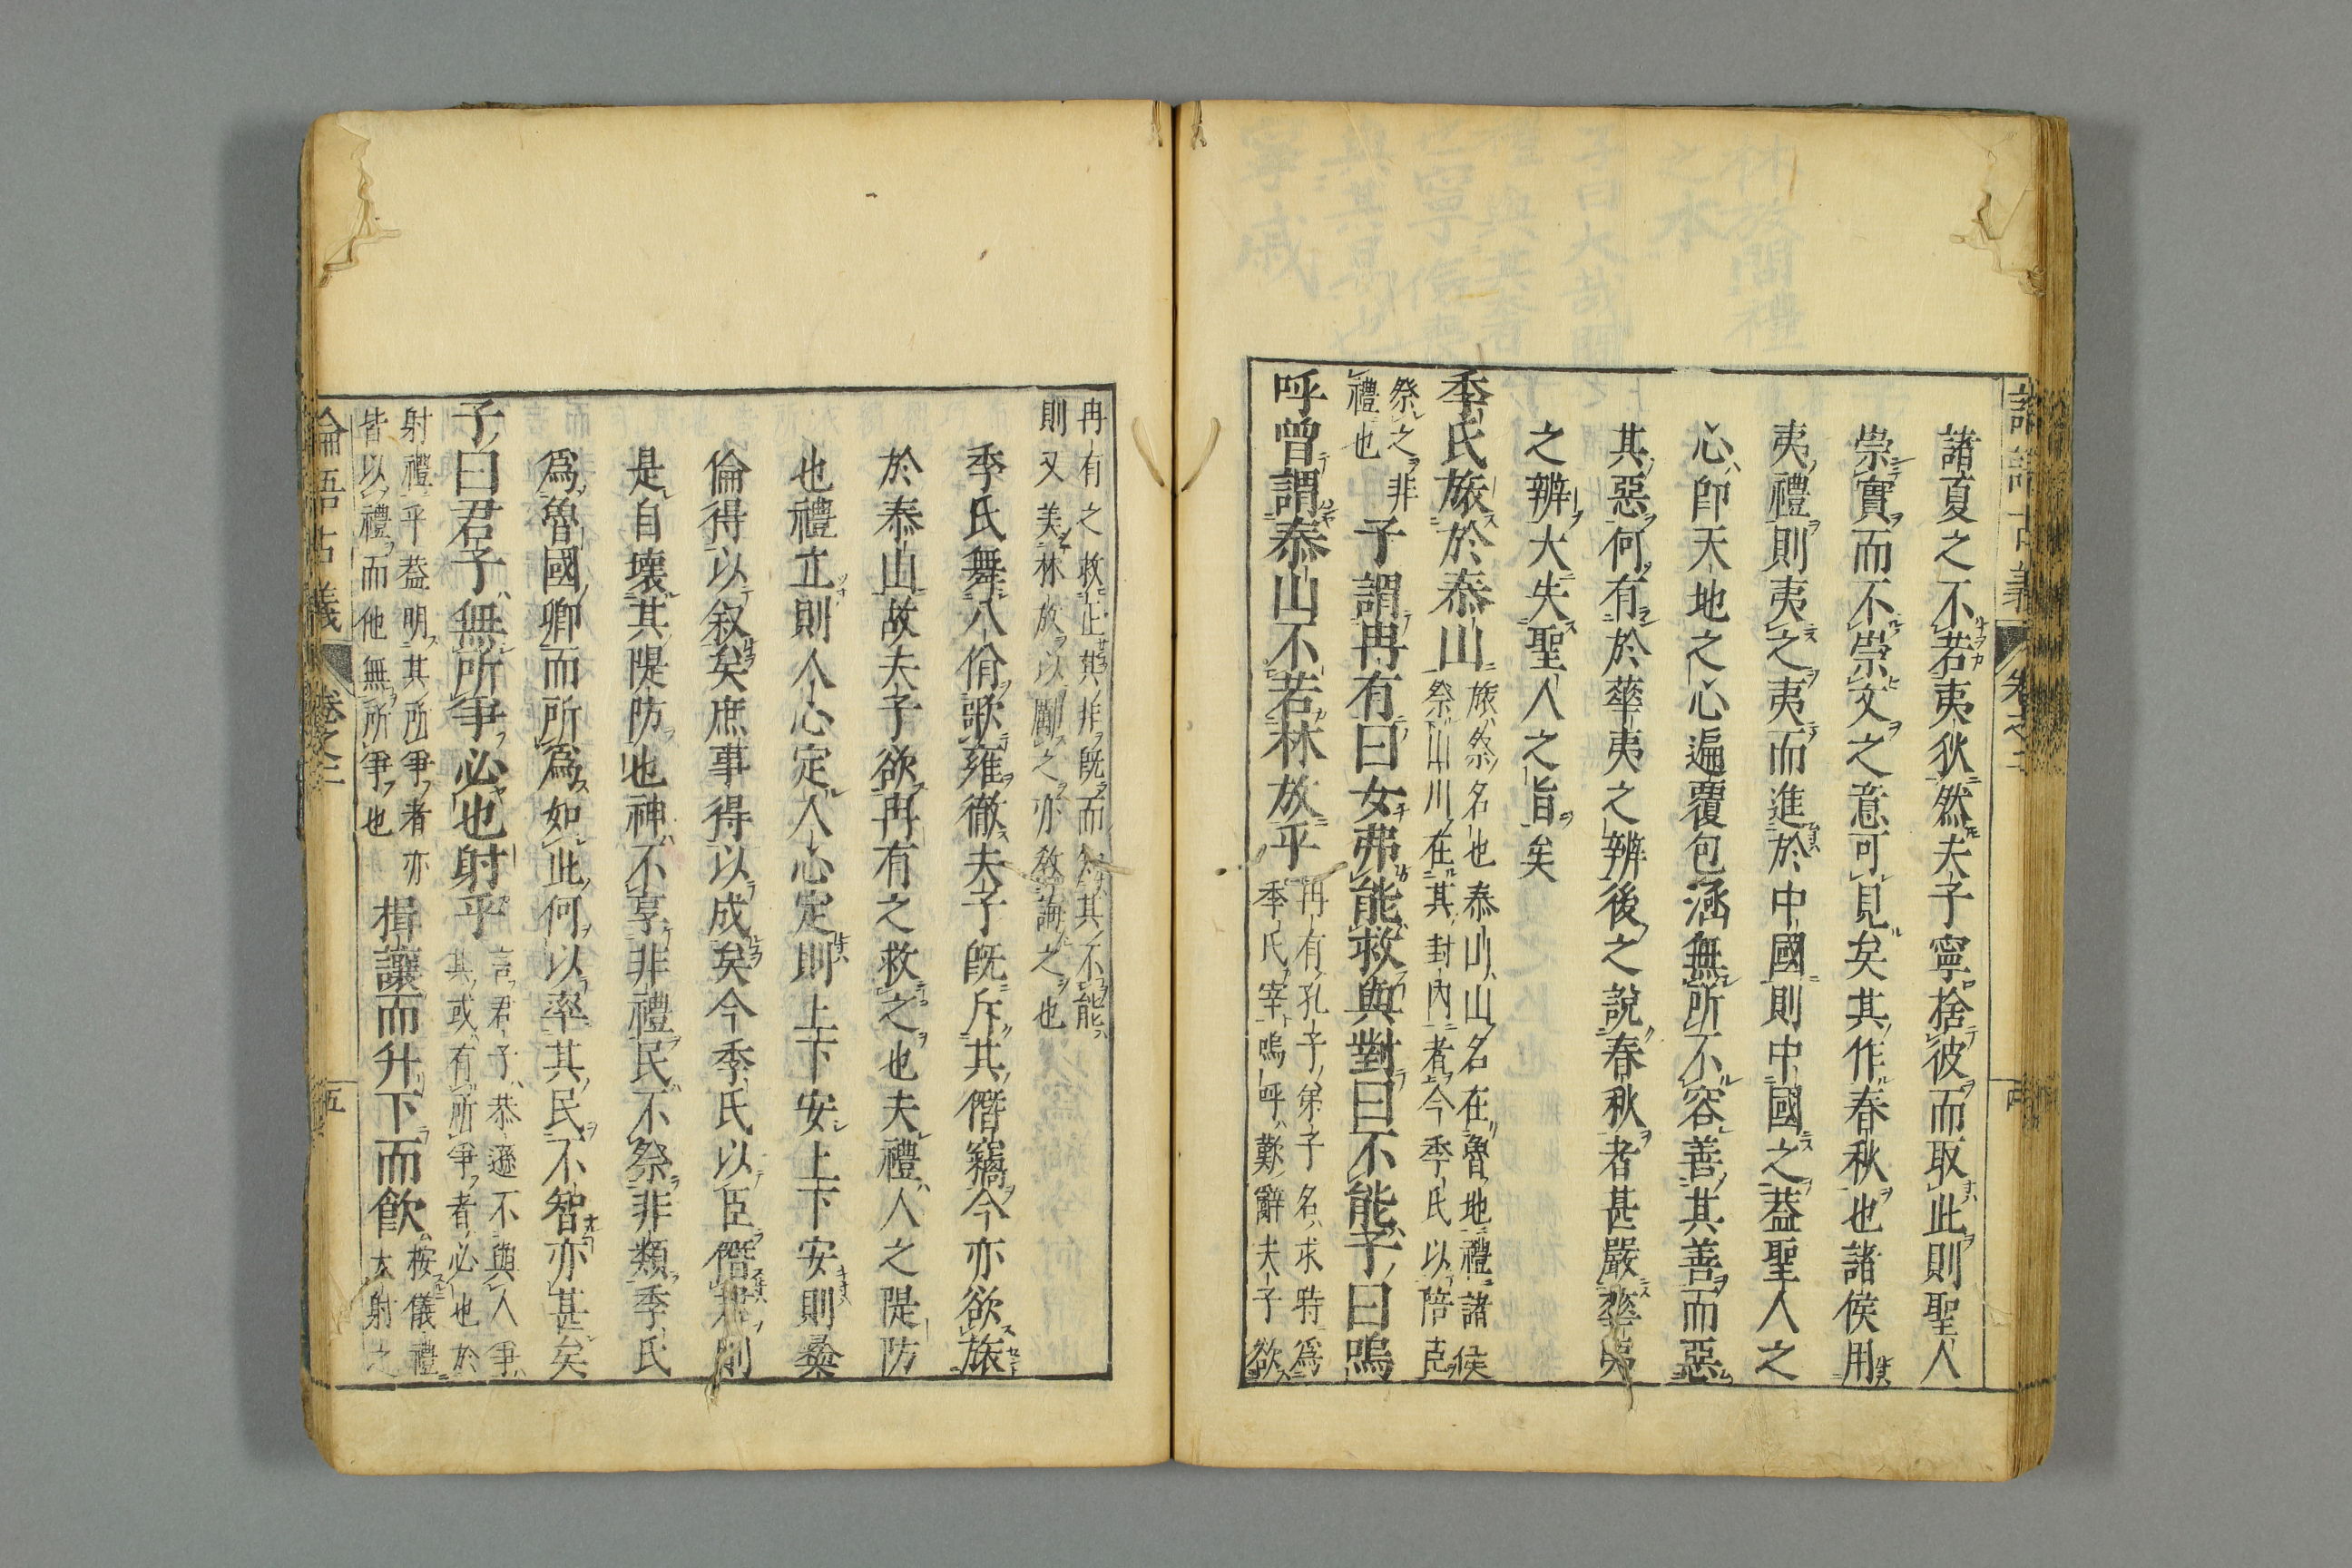 諸夏之不若夷狄然夫子寧捨彼而取此則聖人
崇實而不崇文之意可見矣其作春秋也諸侯用
夷禮則夷之夷而進於中國則中國之蓋聖人之
心卽天地之心遍覆包涵無所不容善其善而惡
其惡何有於華夷之辨後之說春秋者甚嚴華夷
之辨大失聖人之旨矣
季氏旅於泰山 旅祭名也泰山山名在魯地禮諸侯
祭山川在其封內者今季氏以陪臣
祭之非
禮也
子謂冉有曰女弗能救與對曰不能子曰嗚
呼曾謂泰山不若林放乎 冉有孔子弟子名求時爲
季氏宰嗚呼歎辭夫子欲
冉有之救正其非既而知其不能
則又美林放以勵之亦敎誨之也
季氏舞八佾歌雍徹夫子既斥其僭竊今亦欲旅
於泰山故夫子欲冉有之救之也夫禮人之隄防
也禮立則人心定人心定則上下安上下安則彝
倫得以叙矣庶事得以成矣今季氏以臣僭君則
是自壞其隄防也神不享非禮民不祭非類季氏
爲魯國卿而所爲如此何以率其民不智亦甚矣
子曰君子無所爭必也射乎 言君子恭遜不與人爭
其或有所爭者必也於
射禮乎蓋明其所爭者亦
皆以禮而他無所爭也
揖讓而升下而飮 按儀禮
大射之
論語古義 卷之二 五